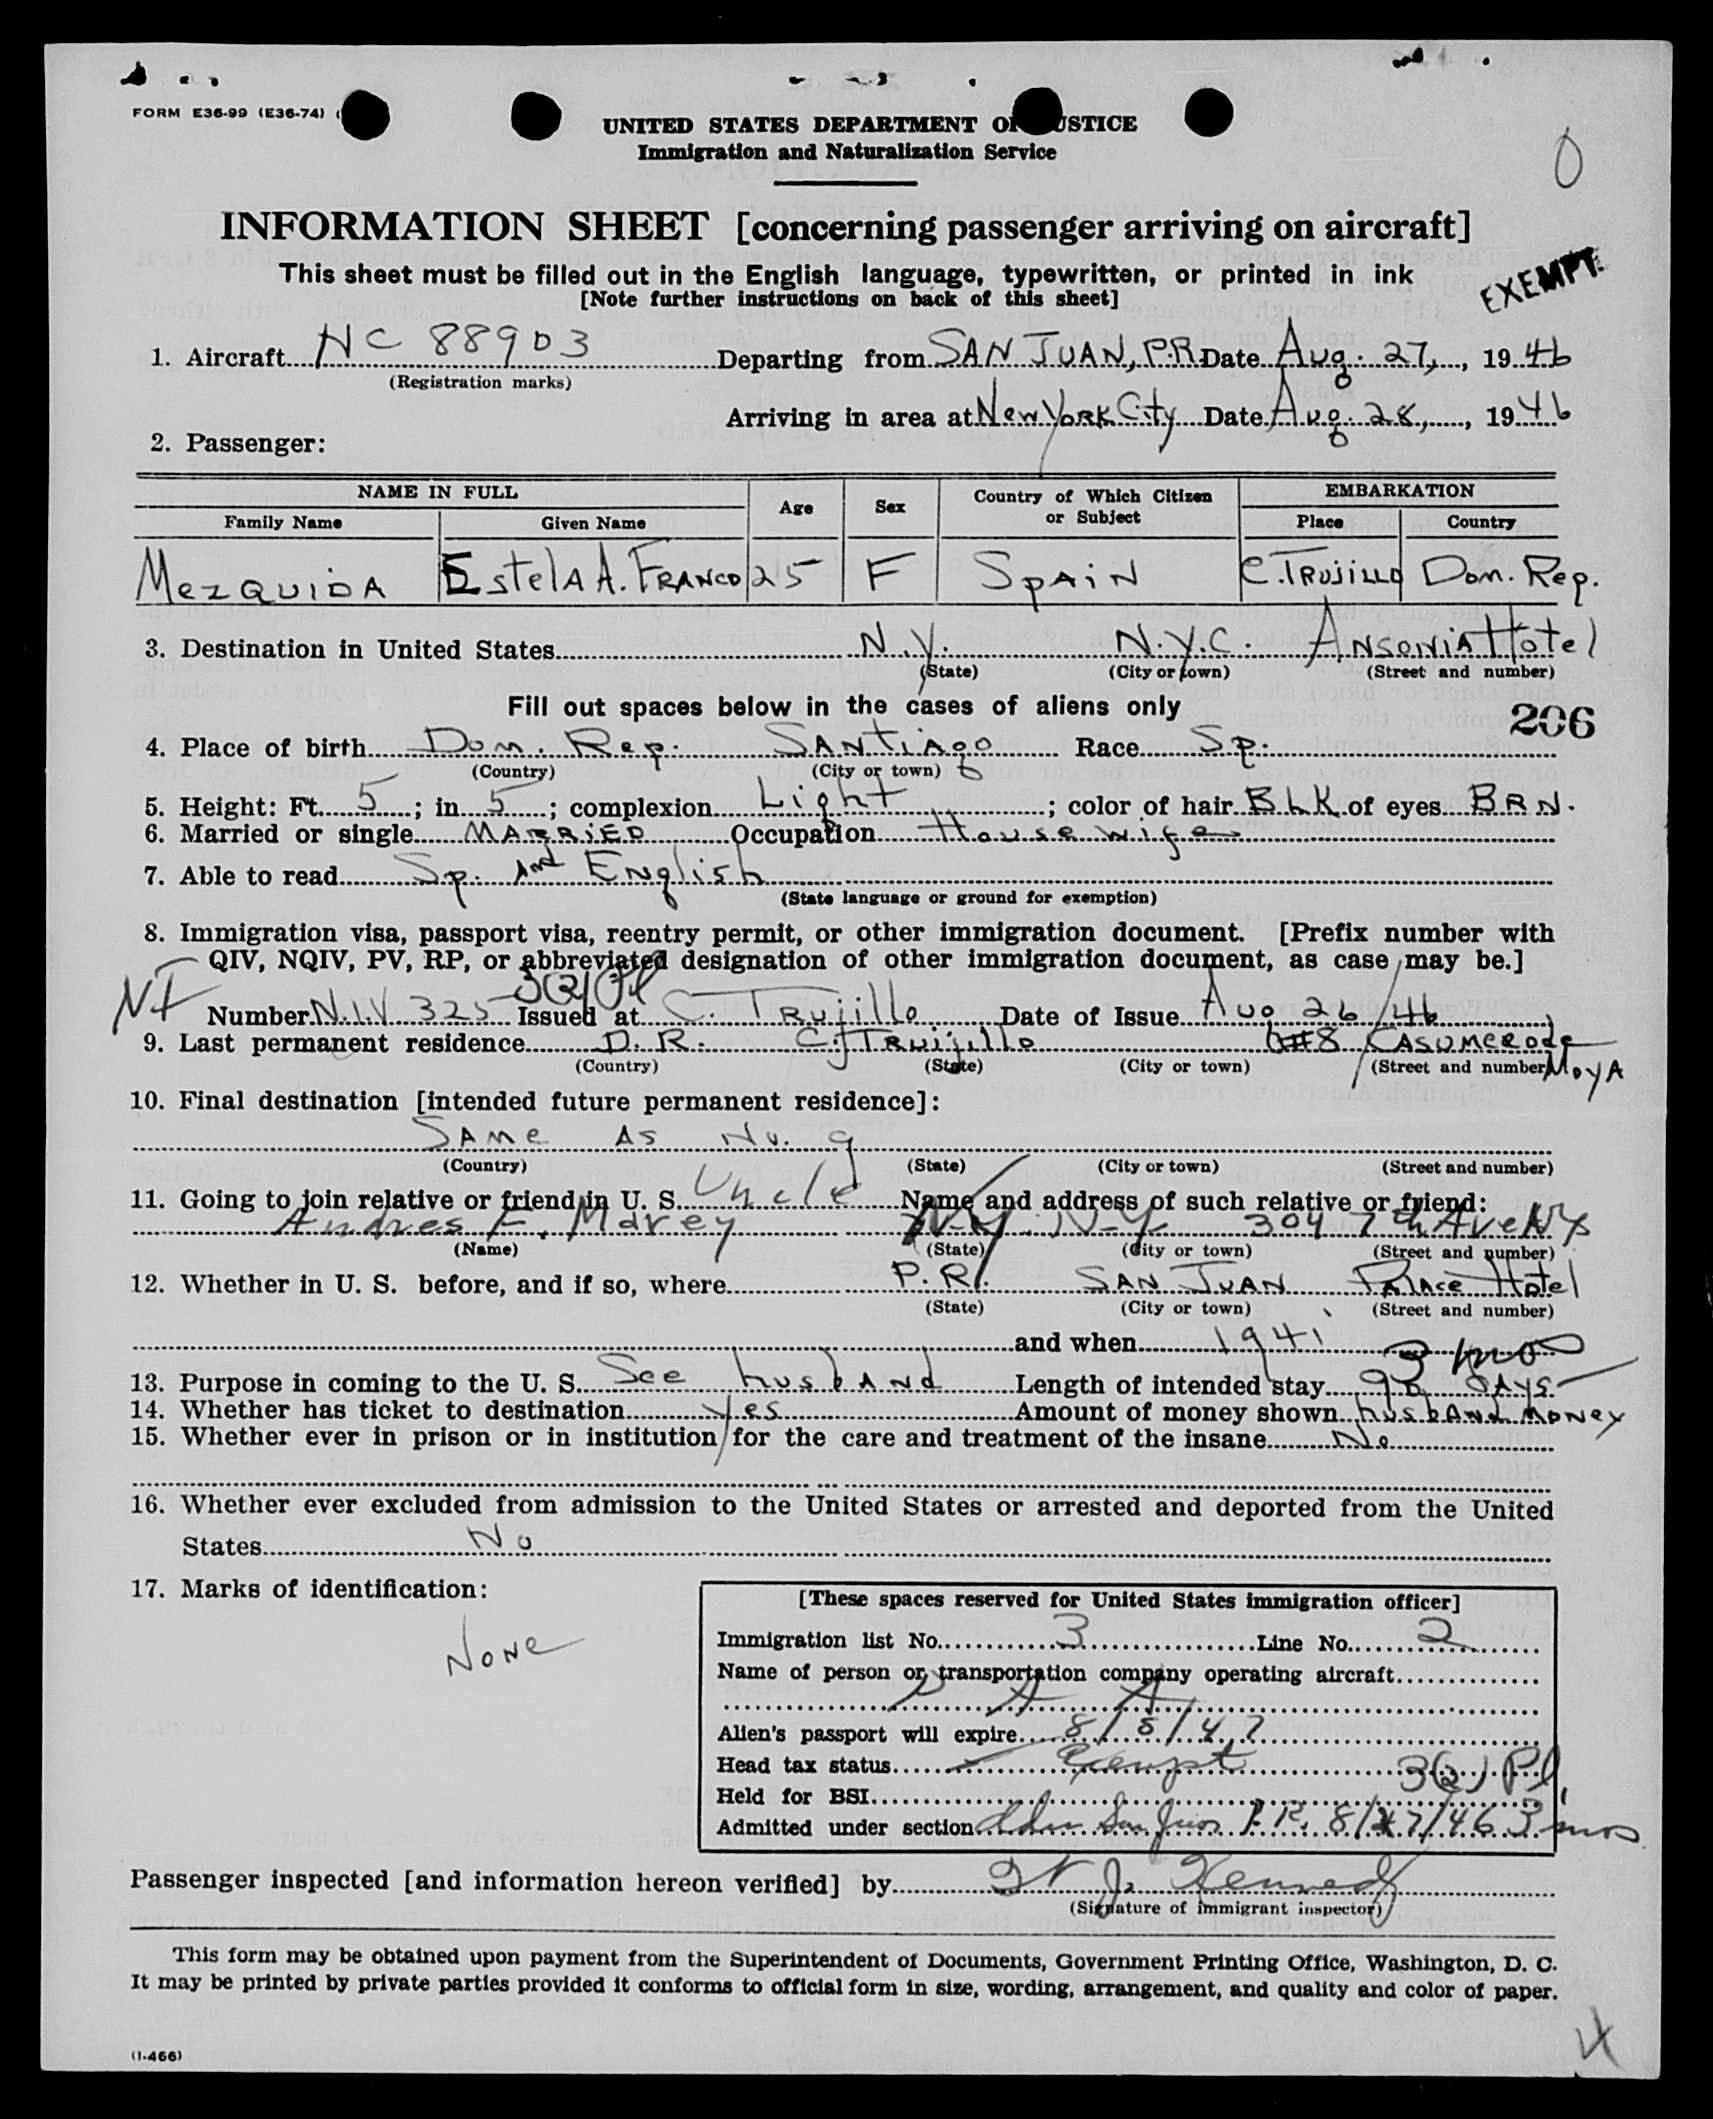 FORM E36-99 (E36-74)
UNITED STATES DEPARTMENT OF JUSTICE
Immigration and Naturalization Service
0
INFORMATION SHEET [concerning passenger arriving on aircraft]
This sheet must be filled out in the English language, typewritten, or printed in ink
[Note further instructions on back of this sheet]
EXEMPT.
1. Aircraft NC 88903 Departing from SAN JUAN, P.R. Date Aug. 27, 1946
(Registration marks)
Arriving in area at New York City Date Aug. 28, 1946
2. Passenger:
NAME IN FULL Age Sex Country of Which Citizen or Subject EMBARKATION
Family Name Given Name Place Country
MEZQUIDA EstelA A. FRANCO 25 F SPAIN C. TRUJILLO Dom. Rep.
3. Destination in United States N.Y. N.Y.C. ANSONIA Hotel
(State) (City or town) (Street and number)
Fill out spaces below in the cases of aliens only
206
4. Place of birth Dom. Rep. SANTIAGO Race Sp.
(Country) (City or town)
5. Height: Ft. 5; in. 5; complexion Light; color of hair BLK of eyes BRN.
6. Married or single MARRIED Occupation House wife
7. Able to read Sp. And English
(State language or ground for exemption)
8. Immigration visa, passport visa, reentry permit, or other immigration document. [Prefix number with
QIV, NQIV, PV, RP, or abbreviated designation of other immigration document, as case may be.]
3(2) Pl
Number N.I.V. 325 Issued at C. TRUJILLO Date of Issue Aug 26/46
9. Last permanent residence D.R. C. TRUJILLO #8 CASUMERODE MOYA
(Country) (State) (City or town) (Street and number)
10. Final destination [intended future permanent residence]:
SAME AS No. 9
(Country) (State) (City or town) (Street and number)
11. Going to join relative or friend in U. S. Uncle Name and address of such relative or friend:
Andres F. Marey N.Y. N-Y- 304 7th Ave NY
(Name) (State) (City or town) (Street and number)
12. Whether in U. S. before, and if so, where P.R. SAN JUAN PALACE Hotel
(State) (City or town) (Street and number)
and when 1941
3 mos
13. Purpose in coming to the U. S. See husband Length of intended stay 90 DAYS.
14. Whether has ticket to destination yes Amount of money shown husband money
15. Whether ever in prison or in institution for the care and treatment of the insane No
16. Whether ever excluded from admission to the United States or arrested and deported from the United
States No
17. Marks of identification:
None
[These spaces reserved for United States immigration officer]
Immigration list No. 3 Line No. 2
Name of person or transportation company operating aircraft
P A A
Alien's passport will expire 8/5/47
Head tax status Exempt 3(2) Pl.
Held for BSI
Admitted under section Adm San Juan P.R. 8/27/46 3 mos
Passenger inspected [and information hereon verified] by J. Kennedy
(Signature of immigrant inspector)
This form may be obtained upon payment from the Superintendent of Documents, Government Printing Office, Washington, D. C.
It may be printed by private parties provided it conforms to official form in size, wording, arrangement, and quality and color of paper.
(I-466)